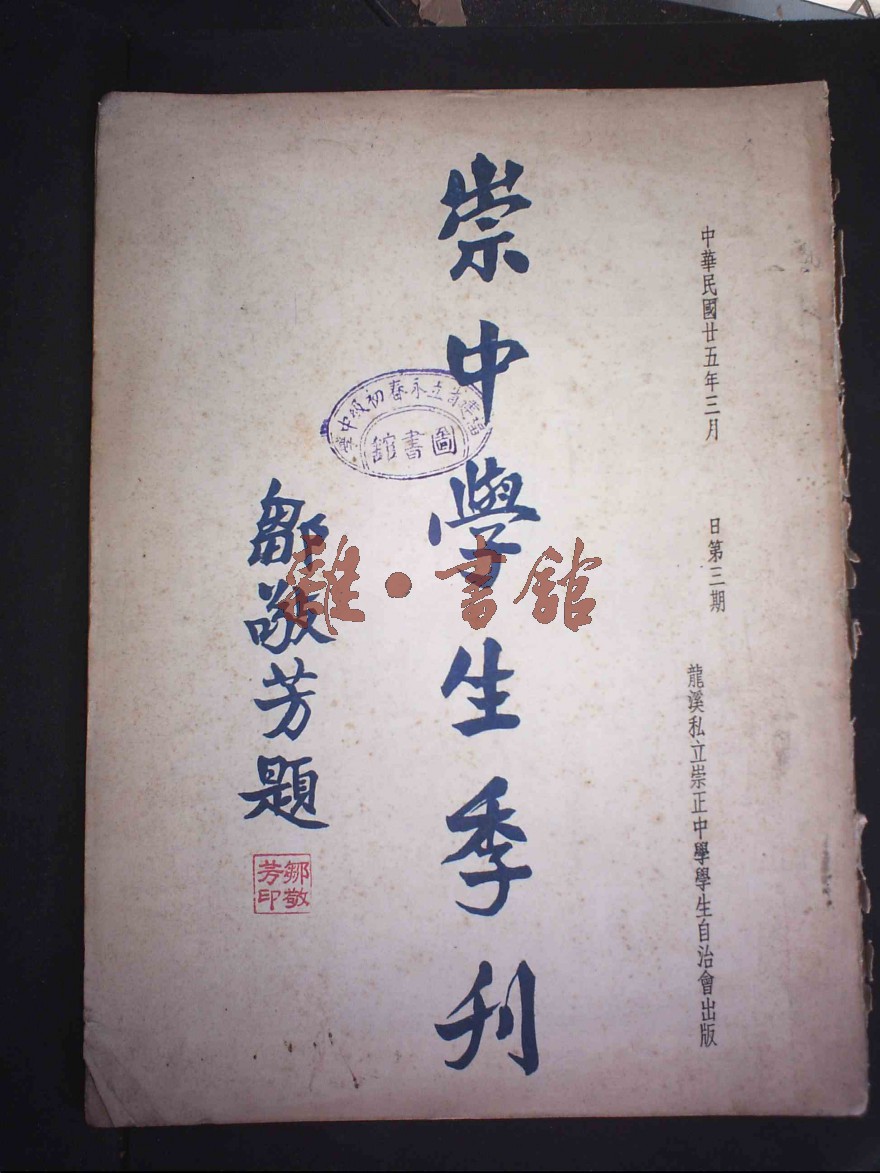 中華民國廿五年三月　日第三期
龍溪私立崇正中學學生自治會出版
崇中學生季刊
福建省立永春初級中學
圖書館
鄒敬芳題
鄒敬芳印
雜·書館